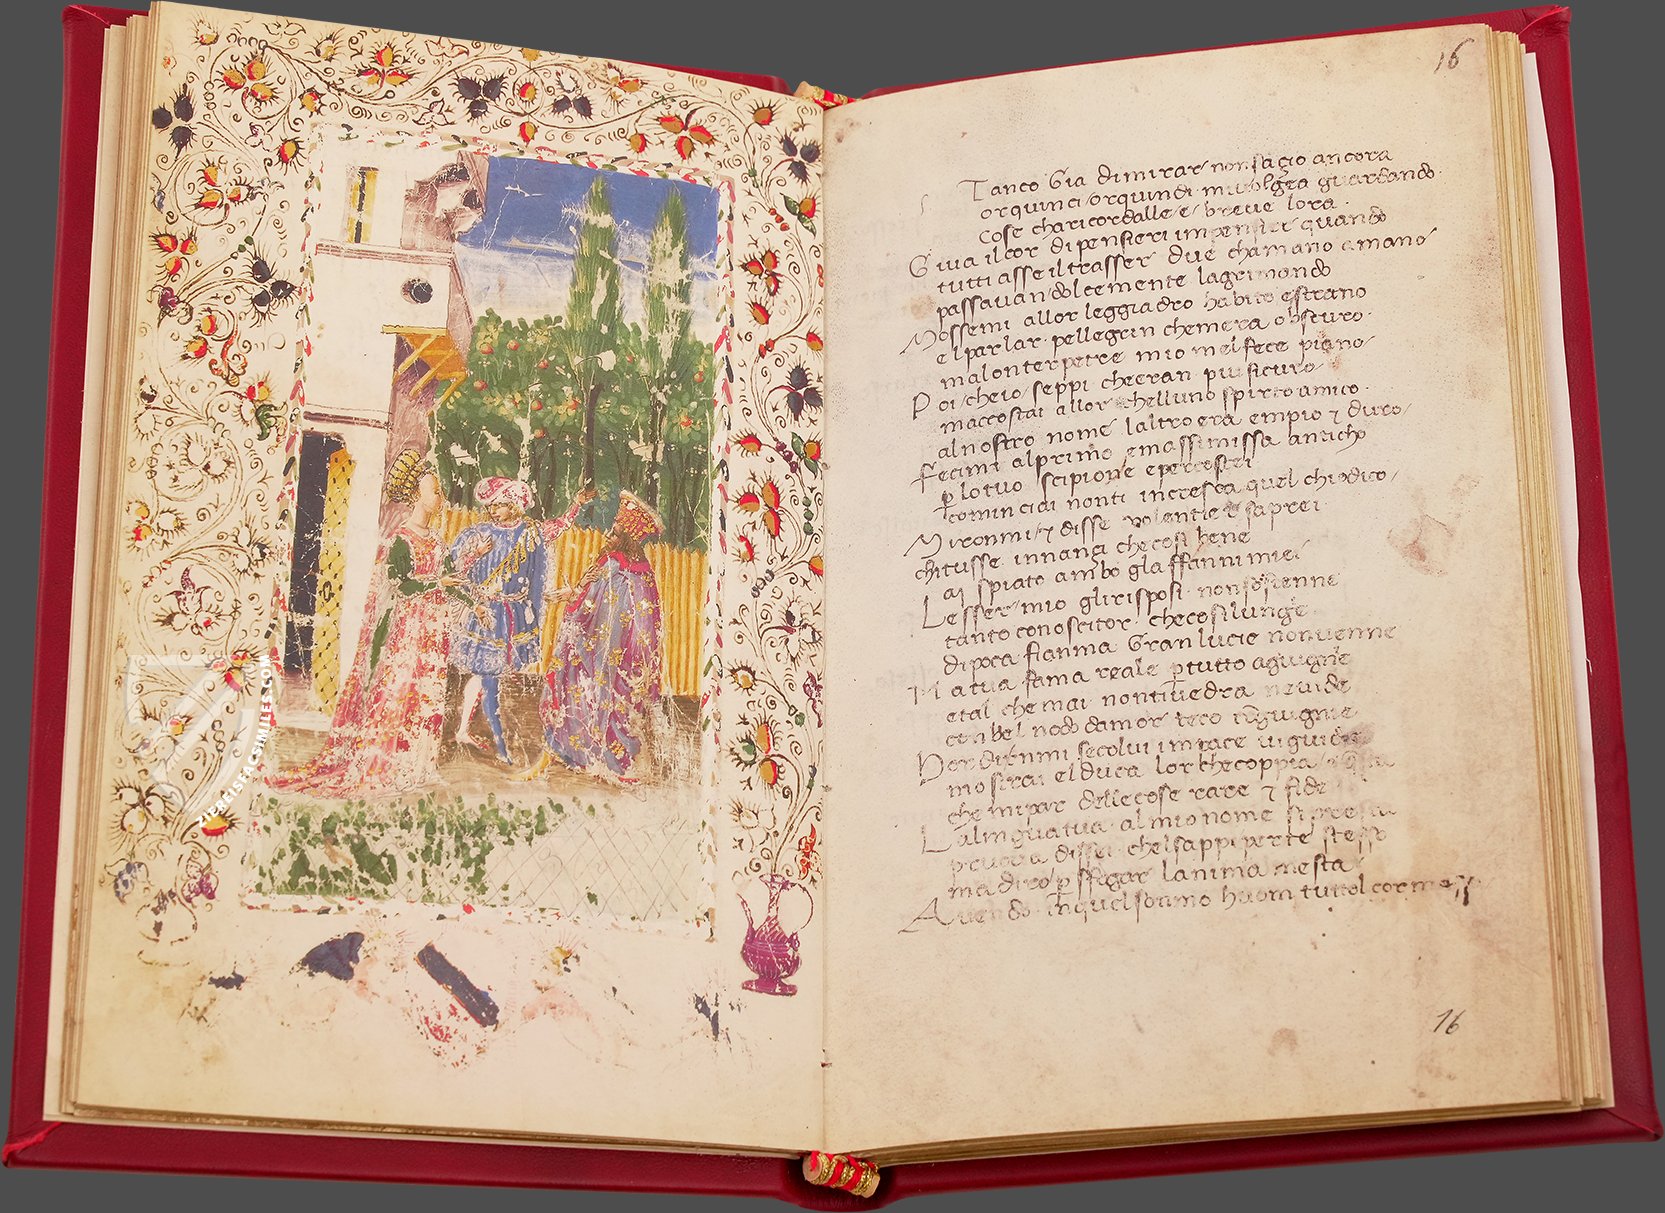 ZIEREISFACSIMILES.COM
16
Tanto Gia di mirar non saçio ancora
or quinci or quindi mi volgea guardando
cose cha ricordalle e breve lora
Giva il cor di pensieri in pensier quando
tutti asse il trasser due cha mano a mano
passavan dolcemente lagrimando
Mossemi allor leggiadro habito estrano
el parlar pellegrin che mera obscuro
ma lonterpetre mio mel fece piano
Poi cheio seppi cheeran piu sicuro
maccostai allor chelluno spirto amico
al nostro nome laltro era empio ⁊ duro
fecimi al primo e massimissa anticho
p lo tuo scipione e per costei
cominciai non ti incresca quel chio dico
Mironmi ⁊ disse volentier saprei
chitusse innanzi che cosi bene
ai spiato ambo gli affanni miei
Lesser mio gli risposi non sostenne
tanto conoscitor che cosi lunge
di poca fianma Gran lucie non venne
Ma tua fama reale p tutto agiugne
e tal che mai non ti vedra ne vide
con bel nodo damor teco
Hor dimmi se colui in pace vi guide
mostrai el duca lor che coppia
che mi par delle cose rare ⁊ fide
La lingua tua al mio nome si presta
pruova dissei chel sappi per te stesso
ma diro p sfogar lanima mesta
Avendo in quel sonmo huom tuttol cor messo
16